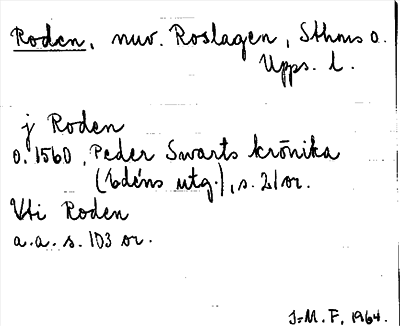 Roden, nuv. Roslagen, Sthms o.
Upps. l.
j Roden
o. 1560, Peder Swarts krönika
(Edéns utg.), s. 21 or.
Vti Roden
a.a. s. 103 or.
J-M. F, 1964.